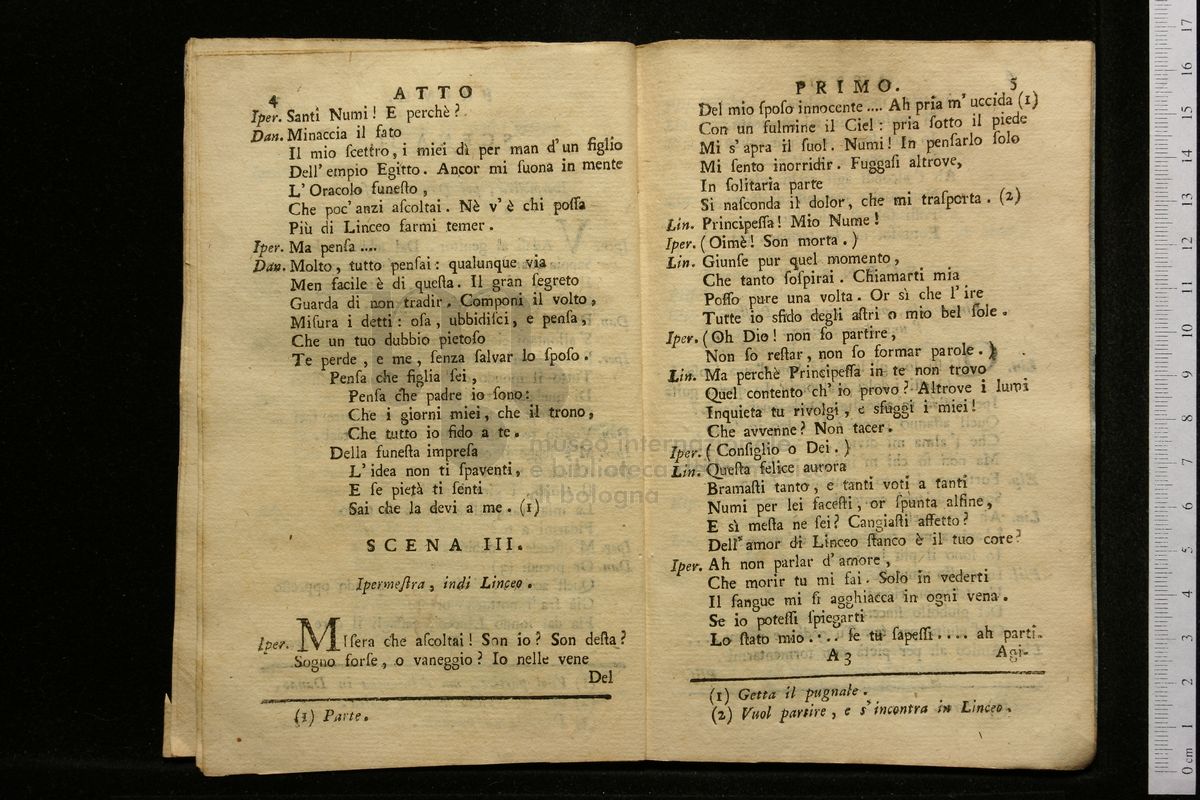 4 ATTO
Iper. Santi Numi! E perchè?
Dan. Minaccia il fato
Il mio ſcettro, i miei dì per man d'un figlio
Dell'empio Egitto. Ancor mi ſuona in mente
L'Oracolo funeſto,
Che poc'anzi aſcoltai. Nè v'è chi poſſa
Più di Linceo farmi temer.
Iper. Ma penſa ....
Dan. Molto, tutto penſai: qualunque via
Men facile è di queſta. Il gran ſegreto
Guarda di non tradir. Componi il volto,
Miſura i detti: oſa, ubbidiſci, e penſa,
Che un tuo dubbio pietoſo
Te perde, e me, ſenza ſalvar lo ſpoſo.
Penſa che figlia ſei,
Penſa che padre io ſono:
Che i giorni miei, che il trono,
Che tutto io fido a te.
Della funeſta impreſa
L'idea non ti ſpaventi,
E ſe pietà ti ſenti
Sai che la devi a me. (1)
SCENA III.
Ipermeſtra, indi Linceo.
Iper. MIſera che aſcoltai! Son io? Son deſta?
Sogno forſe, o vaneggio? Io nelle vene
Del
(1) Parte.
PRIMO. 5
Del mio ſpoſo innocente .... Ah pria m'uccida (1)
Con un fulmine il Ciel: pria ſotto il piede
Mi s'apra il ſuol. Numi! In penſarlo ſolo
Mi ſento inorridir. Fuggaſi altrove,
In ſolitaria parte
Si naſconda il dolor, che mi traſporta. (2)
Lin. Principeſſa! Mio Nume!
Iper. (Oimè! Son morta.)
Lin. Giunſe pur quel momento,
Che tanto ſoſpirai. Chiamarti mia
Poſſo pure una volta. Or sì che l'ire
Tutte io sfido degli aſtri o mio bel ſole.
Iper. (Oh Dio! non ſo partire,
Non ſo reſtar, non ſo formar parole.)
Lin. Ma perchè Principeſſa in te non trovo
Quel contento ch'io provo? Altrove i lumi
Inquieta tu rivolgi, e sfuggi i miei!
Che avvenne? Non tacer.
Iper. (Conſiglio o Dei.)
Lin. Queſta felice aurora
Bramaſti tanto, e tanti voti a tanti
Numi per lei faceſti, or ſpunta alfine,
E sì meſta ne ſei? Cangiaſti affetto?
Dell'amor di Linceo ſtanco è il tuo core?
Iper. Ah non parlar d'amore,
Che morir tu mi fai. Solo in vederti
Il ſangue mi ſi agghiacca in ogni vena.
Se io poteſſi ſpiegarti
Lo ſtato mio .... ſe tu ſapeſſi .... ah parti.
A 3 Agi-
(1) Getta il pugnale.
(2) Vuol partire, e s'incontra in Linceo.
museo internazionale
e biblioteca
di bologna
0 cm 1 2 3 4 5 6 7 8 9 10 11 12 13 14 15 16 17